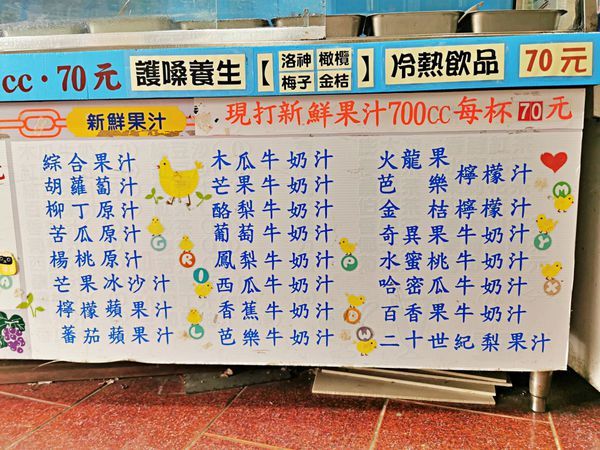 cc·70元 護嗓養生【洛神 橄欖 梅子 金桔】冷熱飲品 70元
新鮮果汁 現打新鮮果汁700cc每杯70元
綜合果汁
胡蘿蔔汁
柳丁原汁
苦瓜原汁
楊桃原汁
芒果冰沙汁
檸檬蘋果汁
蕃茄蘋果汁
木瓜牛奶汁
芒果牛奶汁
酪梨牛奶汁
葡萄牛奶汁
鳳梨牛奶汁
西瓜牛奶汁
香蕉牛奶汁
芭樂牛奶汁
火龍果
芭樂檸檬汁
金桔檸檬汁
奇異果牛奶汁
水蜜桃牛奶汁
哈密瓜牛奶汁
百香果牛奶汁
二十世紀梨果汁